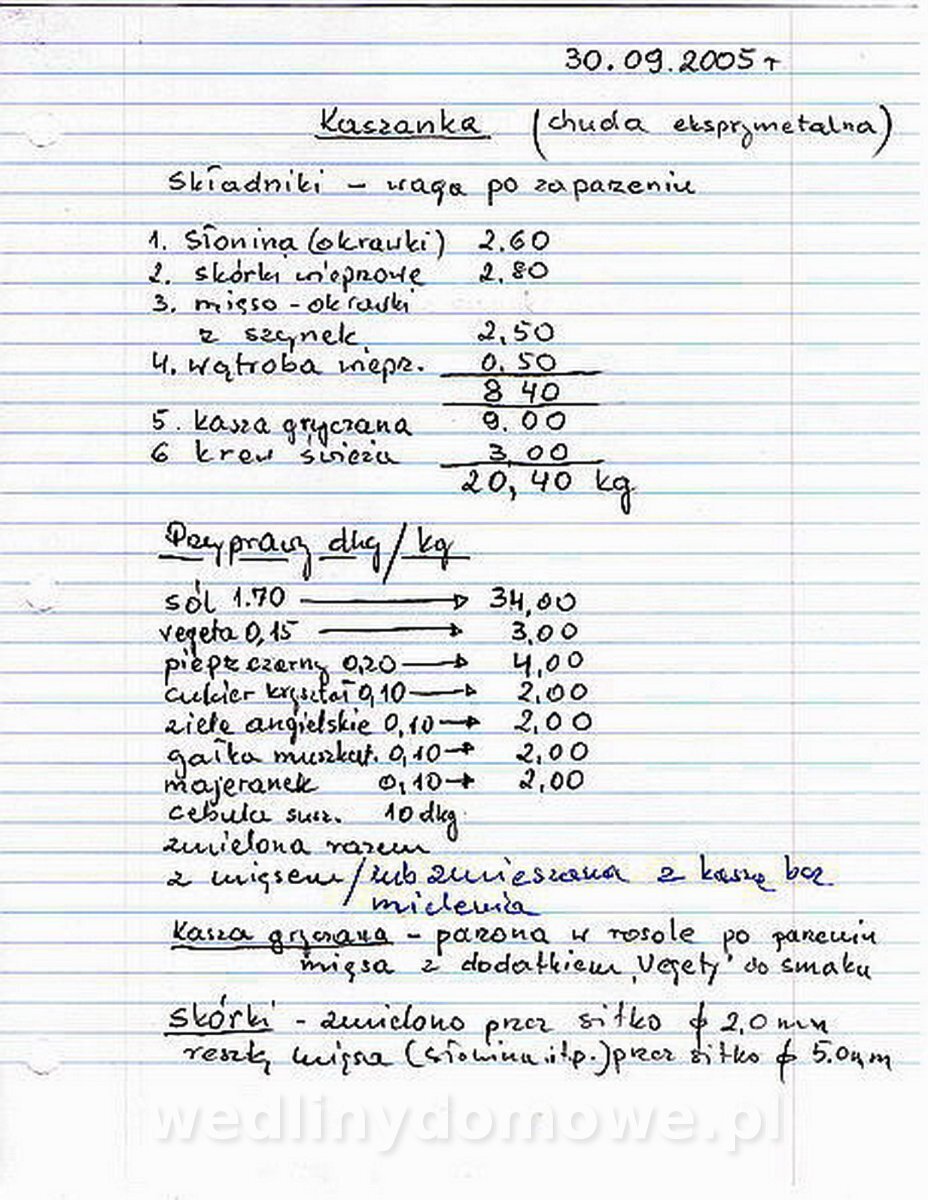 30.09.2005 r
Kaszanka (chuda eksprymetalna)
Składniki – waga po zaparzeniu
1. Słonina (okrawki) 2.60
2. skórki wieprzowe 2.80
3. mięso - okrawki
z szynek 2,50
4. wątroba wiepr. 0.50
8 40
5. kasza gryczana 9.00
6 krew świeża 3,00
20,40 kg
Przyprawy dkg/kg
sól 1.70 → 34,00
vegeta 0,15 → 3,00
pieprz czarny 0,20 → 4,00
cukier kryształ 0,10 → 2,00
ziele angielskie 0,10 → 2,00
gałka muszkat. 0,10 → 2,00
majeranek 0,10 → 2,00
cebula susz. 10 dkg
zmielona razem
z mięsem / lub zmieszana z kaszą bez
mielenia
Kasza gryczana - parzona w rosole po parzeniu
mięsa z dodatkiem „Vegety" do smaku
Skórki - zmielono przez sitko ϕ 2,0 mm
resztę mięsa (słonina itp.) przez sitko ϕ 5.0 mm
wedlinydomowe.pl